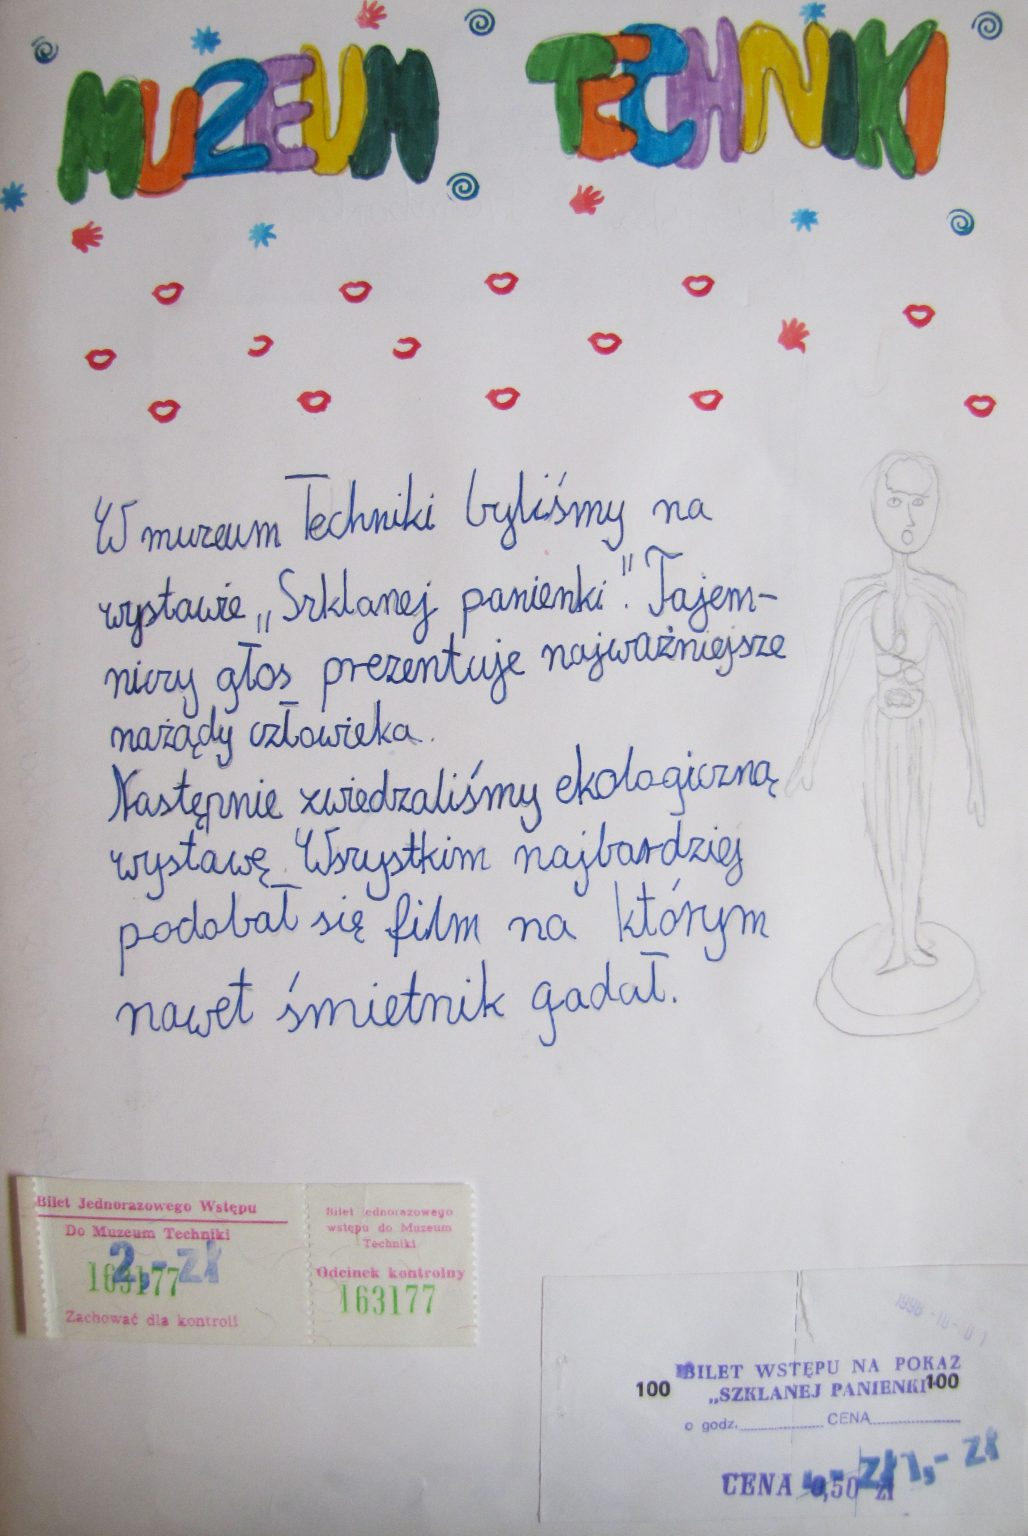 MUZEUM TECHNIKI
W muzeum Techniki byliśmy na
wystawie „Szklanej panienki". Tajem-
niczy głos prezentuje najważniejsze
nażądy człowieka.
Następnie zwiedzaliśmy ekologiczną
wystawę. Wszystkim najbardziej
podobał się film na którym
nawet śmietnik gadał.
Bilet Jednorazowego Wstępu
Do Muzeum Techniki
2,- zł
163177
Zachować dla kontroli
Bilet ednorazowego
wstępu do Muzeum
Techniki
Odcinek kontrolny
163177
1998 -10- 01
BILET WSTĘPU NA POKAZ
100 „SZKLANEJ PANIENKI" 100
o godz. CENA
1,- zł
CENA 0,50 zł